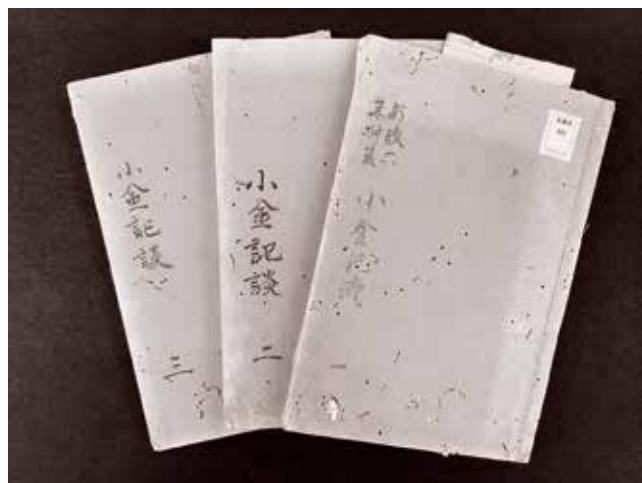 小金記談
一
小金記談
二
小金記談
三